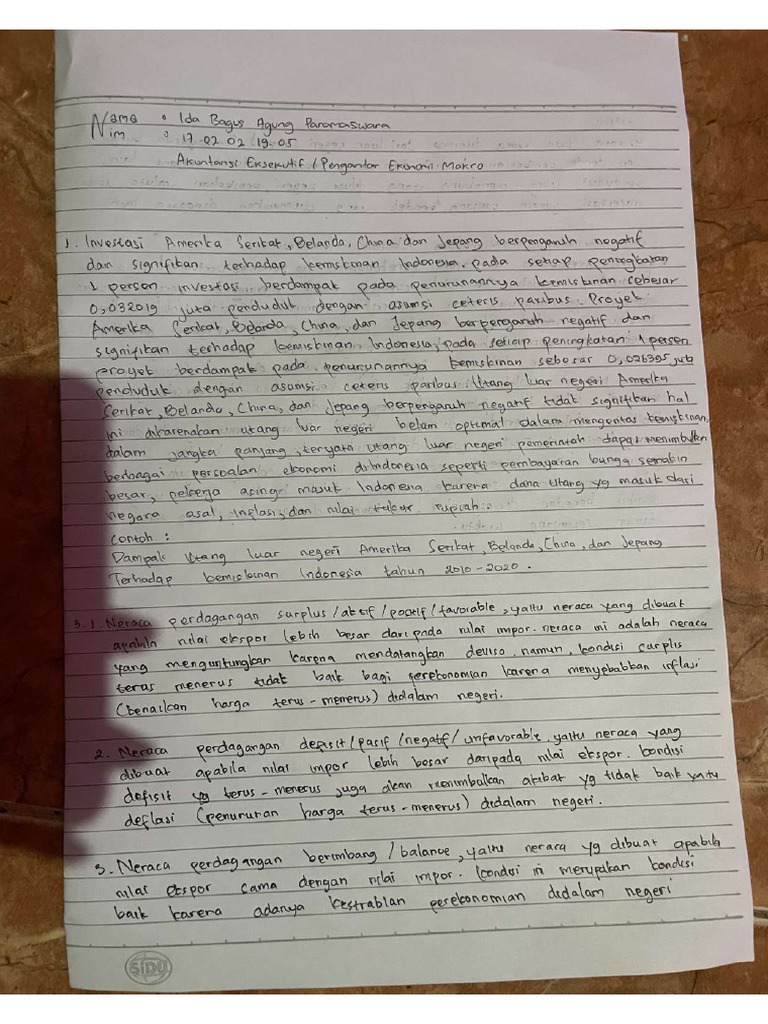 Nama : Ida Bagus Agung Paramaswara
Nim : 17.02.02.19.05
Akuntansi Eksekutif / Pengantar Ekonomi Makro
1. Investasi Amerika Serikat, Belanda, China dan Jepang berpengaruh negatif
dan signifikan terhadap kemiskinan Indonesia, pada setiap peningkatan
1 persen investasi berdampak pada penurunannya kemiskinan sebesar
0,032019 juta penduduk dengan asumsi ceteris paribus. Proyek
Amerika Serikat, Belanda, China, dan Jepang berpengaruh negatif dan
signifikan terhadap kemiskinan Indonesia, pada setiap peningkatan 1 persen
proyek berdampak pada penurunannya kemiskinan sebesar 0,026395 juta
penduduk dengan asumsi ceteris paribus. Utang luar negeri Amerika
Serikat, Belanda, China, dan Jepang berpengaruh negatif tidak signifikan hal
ini dikarenakan utang luar negeri belum optimal dalam mengentas kemiskinan,
dalam jangka panjang, ternyata utang luar negeri pemerintah dapat menimbulkan
berbagai persoalan ekonomi di Indonesia seperti pembayaran bunga semakin
besar, pekerja asing masuk Indonesia karena dana utang yg masuk dari
negara asal, inflasi, dan nilai tukar rupiah.
Contoh :
Dampak Utang luar negeri Amerika Serikat, Belanda, China, dan Jepang
Terhadap kemiskinan Indonesia tahun 2010-2020.
3. 1. Neraca perdagangan surplus/aktif/positif/favorable, yaitu neraca yang dibuat
apabila nilai ekspor lebih besar daripada nilai impor. neraca ini adalah neraca
yang menguntungkan karena mendatangkan devisa, namun, kondisi surplis
terus menerus tidak baik bagi perekonomian karena menyebabkan inflasi
(kenaikan harga terus-menerus) didalam negeri.
2. Neraca perdagangan defisit/pasif/negatif/unfavorable, yaitu neraca yang
dibuat apabila nilai impor lebih besar daripada nilai ekspor. kondisi
defisit yg terus-menerus juga akan menimbulkan akibat yg tidak baik yaitu
deflasi (penurunan harga terus-menerus) didalam negeri.
3. Neraca perdagangan berimbang/balance, yaitu neraca yg dibuat apabila
nilai ekspor sama dengan nilai impor. kondisi ini merupakan kondisi
baik karena adanya kestrablan perekonomian didalam negeri
SIDU